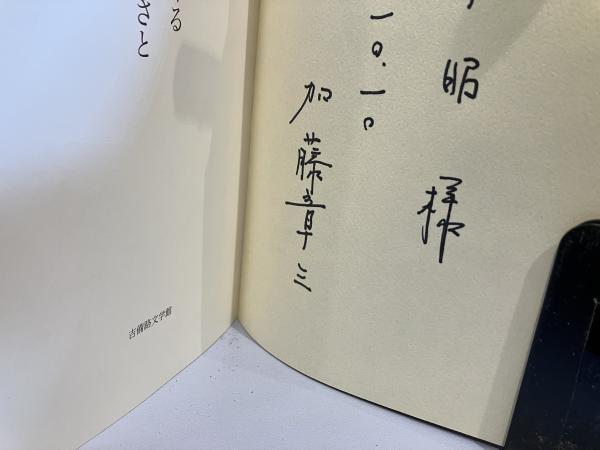 昭 様
一〇.一〇
加藤章三
る
さと
吉備路文学館